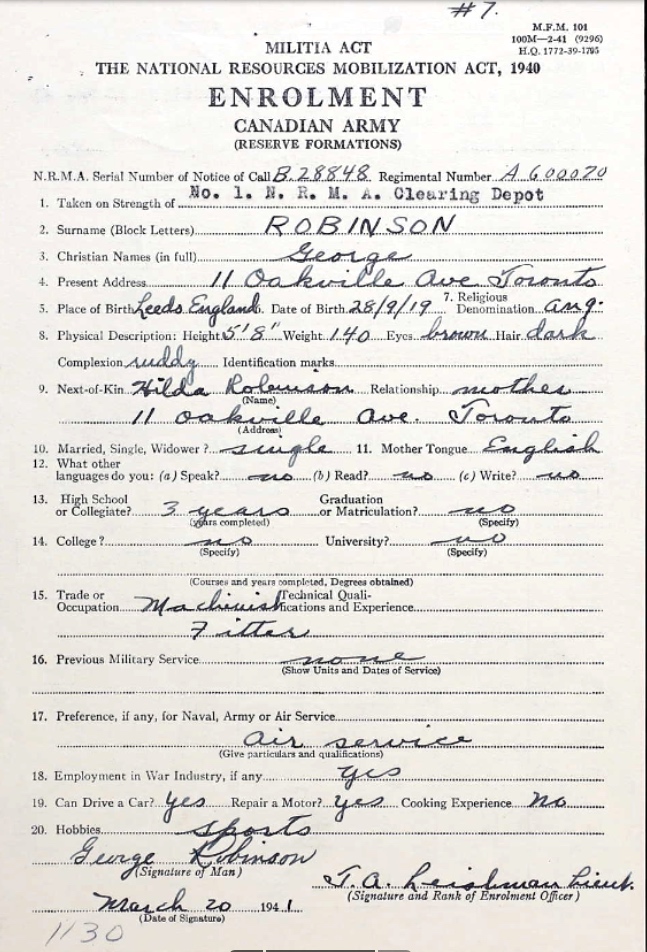 #7.
M.F.M. 101
100M—2-41 (9296)
H.Q. 1772-39-1795
MILITIA ACT
THE NATIONAL RESOURCES MOBILIZATION ACT, 1940
ENROLMENT
CANADIAN ARMY
(RESERVE FORMATIONS)
N.R.M.A. Serial Number of Notice of Call B.28848 Regimental Number A600070
1. Taken on Strength of No. 1. N. R. M. A. Clearing Depot
2. Surname (Block Letters) ROBINSON
3. Christian Names (in full) George
4. Present Address 11 Oakville Ave Toronto
5. Place of Birth Leeds England 6. Date of Birth 28/9/19 7. Religious Denomination ang.
8. Physical Description: Height 5'8" Weight 140 Eyes brown Hair dark
Complexion ruddy Identification marks
9. Next-of-Kin Hilda Robinson Relationship mother
(Name)
11 Oakville Ave. Toronto
(Address)
10. Married, Single, Widower? single 11. Mother Tongue English
12. What other languages do you: (a) Speak? no (b) Read? no (c) Write? no
13. High School or Collegiate? 3 years Graduation or Matriculation? no
(years completed) (Specify)
14. College? no University? no
(Specify) (Specify)
(Courses and years completed, Degrees obtained)
15. Trade or Occupation Machinist Technical Qualifications and Experience
Fitter
16. Previous Military Service none
(Show Units and Dates of Service)
17. Preference, if any, for Naval, Army or Air Service
air service
(Give particulars and qualifications)
18. Employment in War Industry, if any yes
19. Can Drive a Car? yes Repair a Motor? yes Cooking Experience no
20. Hobbies sports
George Robinson
(Signature of Man)
J.A. Leishman Lieut.
(Signature and Rank of Enrolment Officer)
March 20 1941
(Date of Signature)
1130